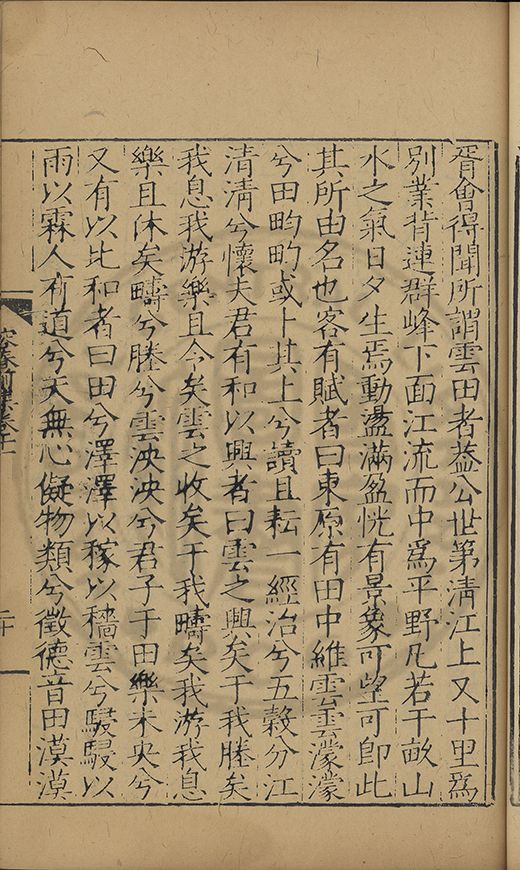 胥會得聞所謂雲田者葢公世第清江上又十里爲
別業背連群峰下面江流而中爲平野凡若干畝山
水之氣日夕生焉動盪滿盈恍有景象可望可卽此
其所由名也客有賦者曰東原有田中維雲雲濛濛
兮田畇畇或卜其上兮讀且耘一經治兮五穀分江
清清兮懷夫君有和以興者曰雲之興矣于我塍矣
我息我游樂且今矣雲之收矣于我疇矣我游我息
樂且休矣疇兮塍兮雲泱泱兮君子于田樂未央兮
又有以比和者曰田兮澤澤以稼以穡雲兮駸駸以
雨以霖人有道兮天無心儗物類兮徵德音田漠漠
二十